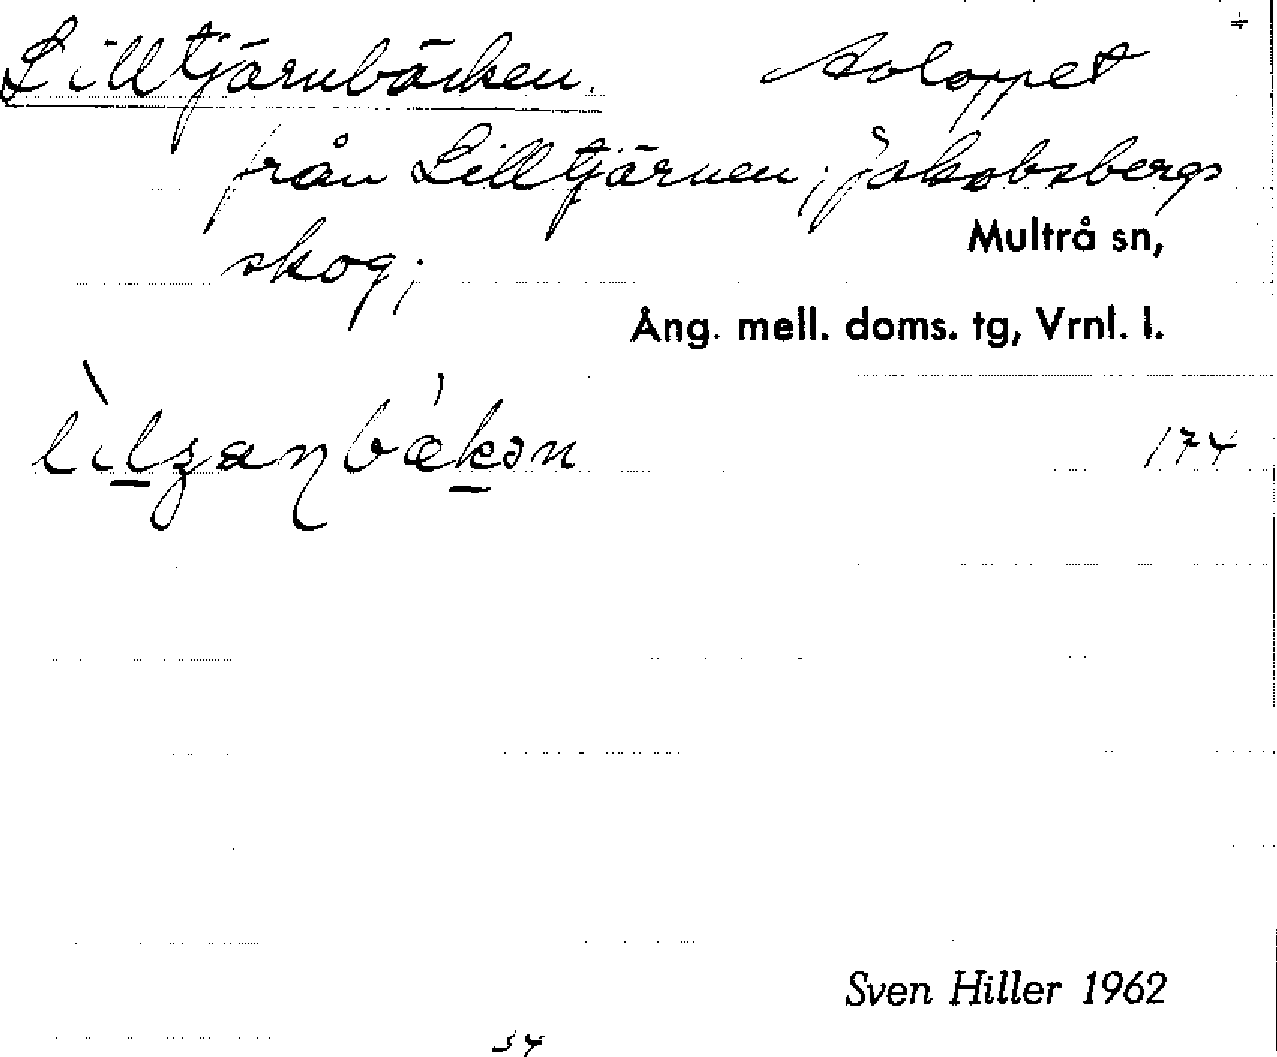 Lilltjärnbäcken. Avloppet
från Lilltjärnen; Jakobsbergs
skog;
Multrå sn,
Ång. mell. doms. tg, Vrnl. l.
174
Sven Hiller 1962
54